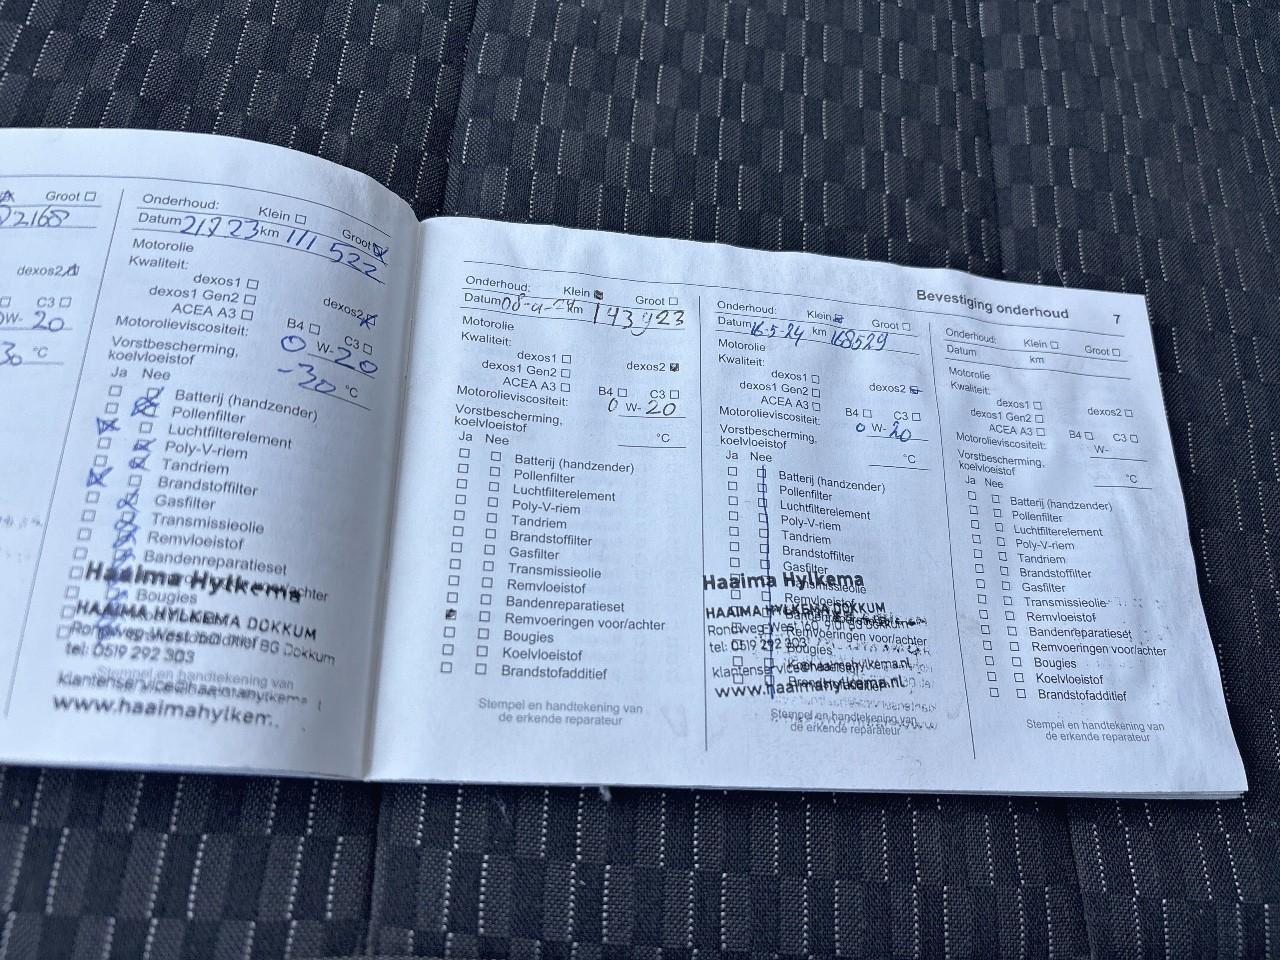 Groot
dexos2
C3
W- 20
°C
Onderhoud: Klein Groot
Datum 21 7 23 km 111 522
Motorolie
Kwaliteit:
dexos1 dexos2
dexos1 Gen2
ACEA A3 B4 C3
Motorolieviscositeit: 0 W- 20
Vorstbescherming,
koelvloeistof -30 °C
Ja Nee
Batterij (handzender)
Pollenfilter
Luchtfilterelement
Poly-V-riem
Tandriem
Brandstoffilter
Gasfilter
Transmissieolie
Remvloeistof
Bandenreparatieset
Bougies
Haaima Hylkema
HAAIMA HYLKEMA DOKKUM
tel: 0519 292 303
Stempel en handtekening van
www.haaimahylkem
Bevestiging onderhoud 7
Onderhoud: Klein Groot
Datum km
Motorolie
Kwaliteit:
dexos1 dexos2
dexos1 Gen2
ACEA A3 B4 C3
Motorolieviscositeit: 0 W- 20
Vorstbescherming,
koelvloeistof °C
Ja Nee
Batterij (handzender)
Pollenfilter
Luchtfilterelement
Poly-V-riem
Tandriem
Brandstoffilter
Gasfilter
Transmissieolie
Remvloeistof
Bandenreparatieset
Remvoeringen voor/achter
Bougies
Koelvloeistof
Brandstofadditief
Stempel en handtekening van
de erkende reparateur
Onderhoud: Klein Groot
Datum 16-5-24 km 168529
Motorolie
Kwaliteit:
dexos1 dexos2
dexos1 Gen2
ACEA A3 B4 C3
Motorolieviscositeit: 0 W- 20
Vorstbescherming,
koelvloeistof °C
Ja Nee
Batterij (handzender)
Pollenfilter
Luchtfilterelement
Poly-V-riem
Tandriem
Brandstoffilter
Gasfilter
Transmissieolie
Haaima Hylkema
Remvloeistof
HAAIMA HYLKEMA DOKKUM
Remvoeringen voor/achter
tel: 0519 292 303
Bougies
www.haaimahylkema.nl
Stempel en handtekening van
de erkende reparateur
Onderhoud: Klein Groot
Datum km
Motorolie
Kwaliteit:
dexos1 dexos2
dexos1 Gen2
ACEA A3 B4 C3
Motorolieviscositeit: W-
Vorstbescherming,
koelvloeistof °C
Ja Nee
Batterij (handzender)
Pollenfilter
Luchtfilterelement
Poly-V-riem
Tandriem
Brandstoffilter
Gasfilter
Transmissieolie
Remvloeistof
Bandenreparatieset
Remvoeringen voor/achter
Bougies
Koelvloeistof
Brandstofadditief
Stempel en handtekening van
de erkende reparateur